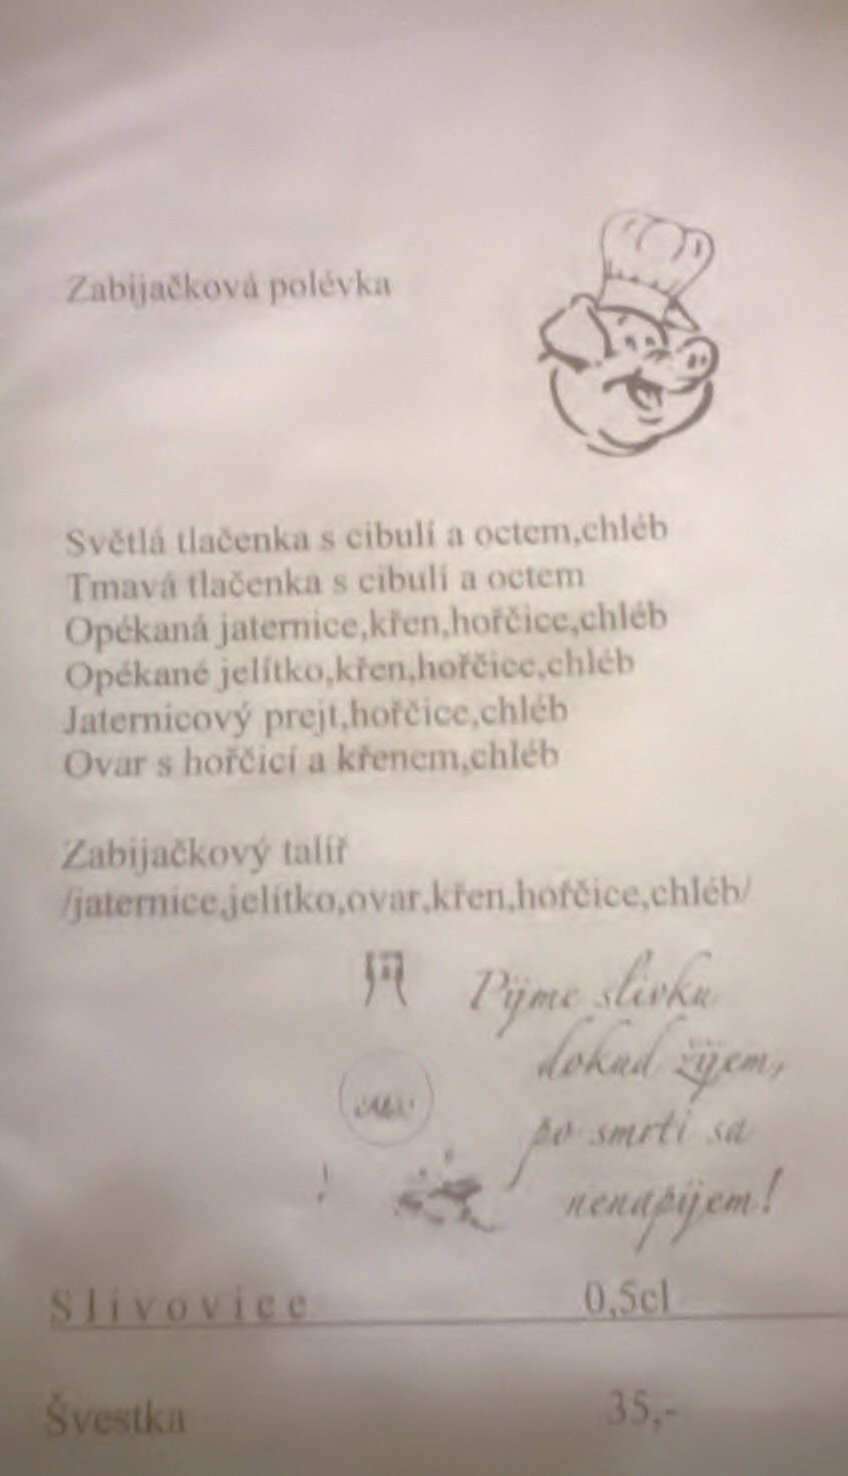 Zabijačková polévka
Světlá tlačenka s cibulí a octem,chléb
Tmavá tlačenka s cibulí a octem
Opékaná jaternice,křen,hořčice,chléb
Opékané jelítko,křen,hořčice,chléb
Jaternicový prejt,hořčice,chléb
Ovar s hořčicí a křenem,chléb
Zabijačkový talíř
/jaternice,jelítko,ovar,křen,hořčice,chléb/
Pijme slivku
dokud žijem,
po smrti sa
nenapijem!
Slivovice 0,5cl
Švestka 35,-